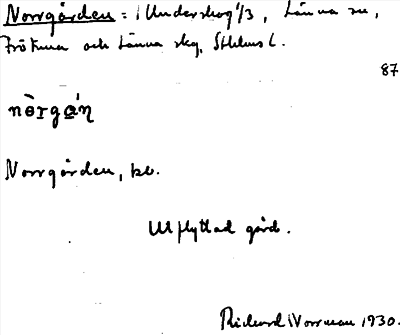 Norrgården = 1 Underskog 1/3, Länna sn,
Frötuna och Länna skg, Sthlms l.
87
nòrgɑ́ɳ
Norrgården, be.
Utflyttad gård.
Rickard Worrman 1930.